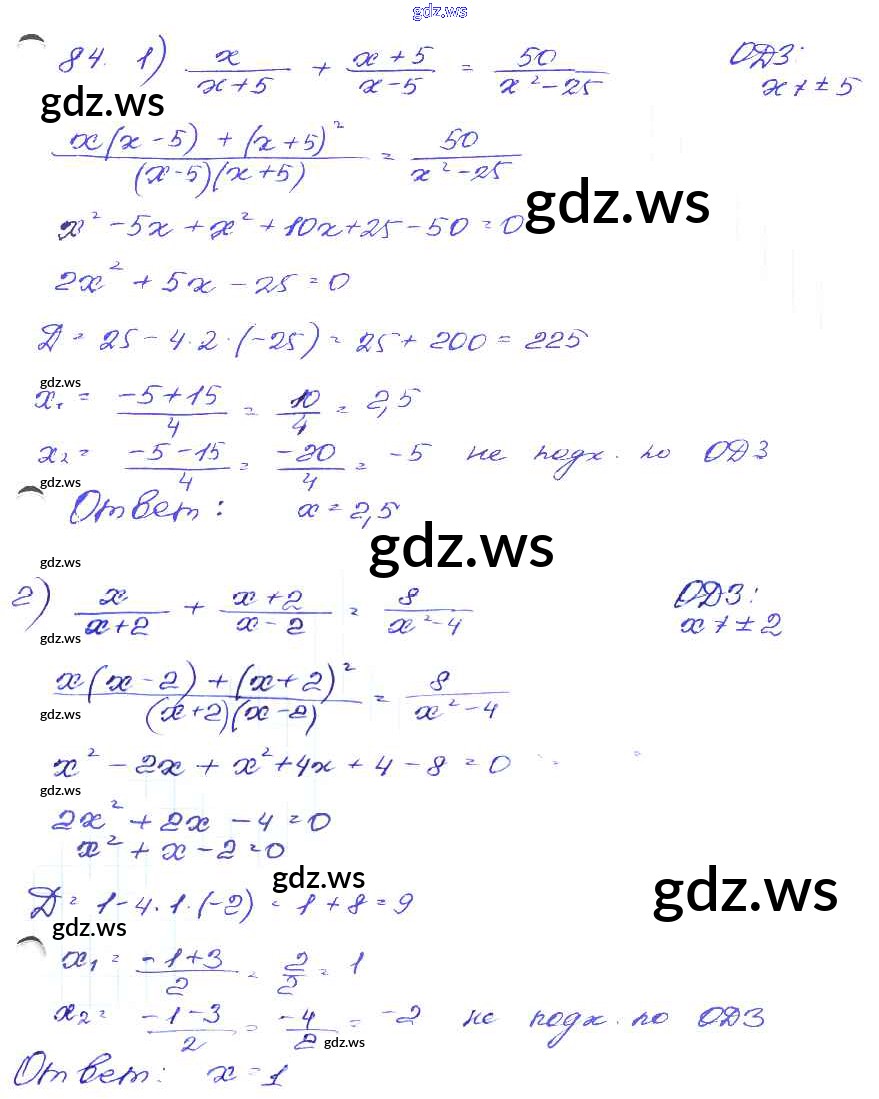 gdz.ws
84. 1) x/(x+5) + (x+5)/(x-5) = 50/(x²-25) ОДЗ: x ≠ ± 5
gdz.ws
(x(x-5) + (x+5)²)/((x-5)(x+5)) = 50/(x²-25)
gdz.ws
x² - 5x + x² + 10x + 25 - 50 = 0
2x² + 5x - 25 = 0
Д = 25 - 4·2·(-25) = 25 + 200 = 225
gdz.ws
x₁ = (-5+15)/4 = 10/4 = 2,5
x₂ = (-5-15)/4 = -20/4 = -5 не подх. по ОДЗ
gdz.ws
Ответ: x = 2,5
gdz.ws
gdz.ws
2) x/(x+2) + (x+2)/(x-2) = 8/(x²-4) ОДЗ: x ≠ ± 2
gdz.ws
(x(x-2) + (x+2)²)/((x+2)(x-2)) = 8/(x²-4)
gdz.ws
x² - 2x + x² + 4x + 4 - 8 = 0
gdz.ws
2x² + 2x - 4 = 0
x² + x - 2 = 0
gdz.ws
Д = 1 - 4·1·(-2) = 1 + 8 = 9
gdz.ws
gdz.ws
x₁ = (-1+3)/2 = 2/2 = 1
x₂ = (-1-3)/2 = -4/2 = -2 не подх. по ОДЗ
gdz.ws
Ответ: x = 1